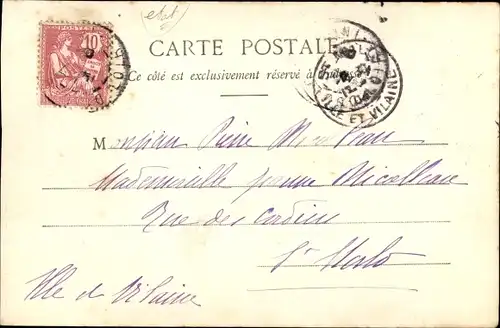 (etat)
POSTES
10
CARTE POSTALE
Ce côté est exclusivement réservé à
ILLE ET VILAINE
Monsieur
Mademoiselle Jeanne Nicolleau
Rue des Cordiers
St Malo
Ille et Vilaine